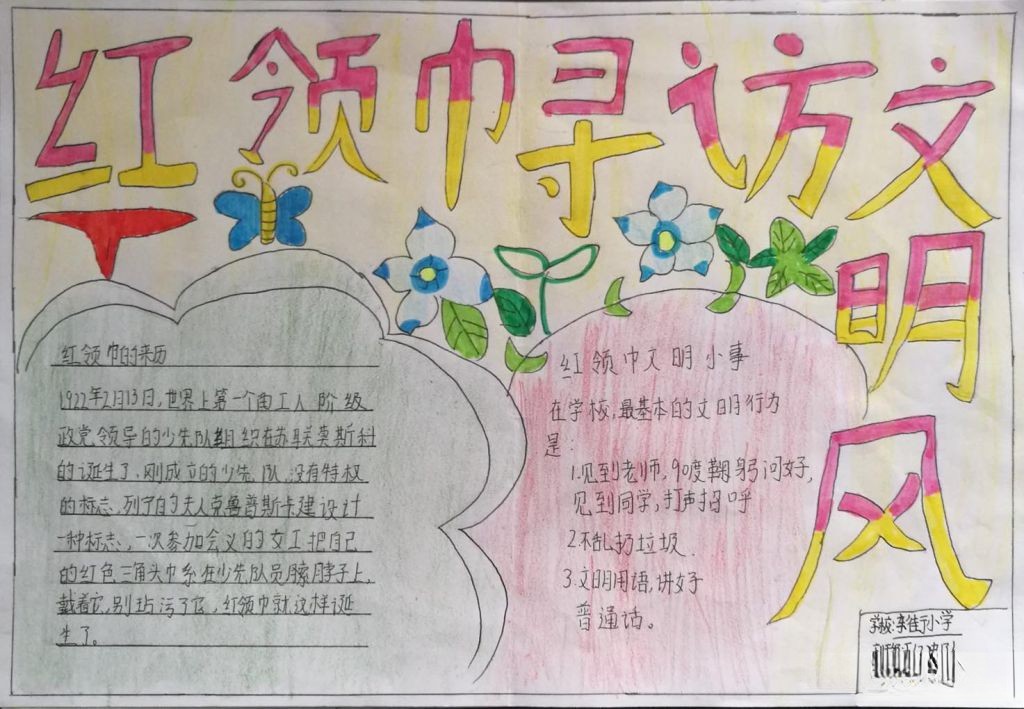 红领巾寻访文明风
红领巾的来历
1922年2月13日,世界上第一个由工人阶级
政党领导的少先队组织在苏联莫斯科
的诞生了,刚成立的少先队,没有特权
的标志,列宁的夫人克鲁普斯卡建设计
一种标志,一次参加会义的女工把自己
的红色三角头巾系在少先队员脖子上,
戴着它,别玷污了它,红领巾就这样诞
生了。
红领巾文明小事
在学校,最基本的文明行为
是:
1.见到老师,90度鞠躬问好,
见到同学,打声招呼
2.不乱扔垃圾.
3.文明用语,讲好
普通话。
学校:李佳于小学